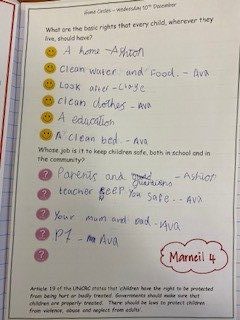 Game Circles - Wednesday 10th December
What are the basic rights that every child, wherever they
live, should have?
A home - Ashton
Clean water and food. - Ava
Look after -
Clean clothes - Ava
A education
A clean bed. - Ava
Whose job is it to keep children safe, both in school and in
the community?
Parents and guardians - Ashton
teacher keep you safe. - Ava
Your mum and dad - Ava
P7 - Ava
Marneil 4
Article 19 of the UNCRC states that children have the right to be protected
from being hurt or badly treated. Governments should make sure that
children are properly treated. There should be laws to protect children
from violence, abuse and neglect from adults